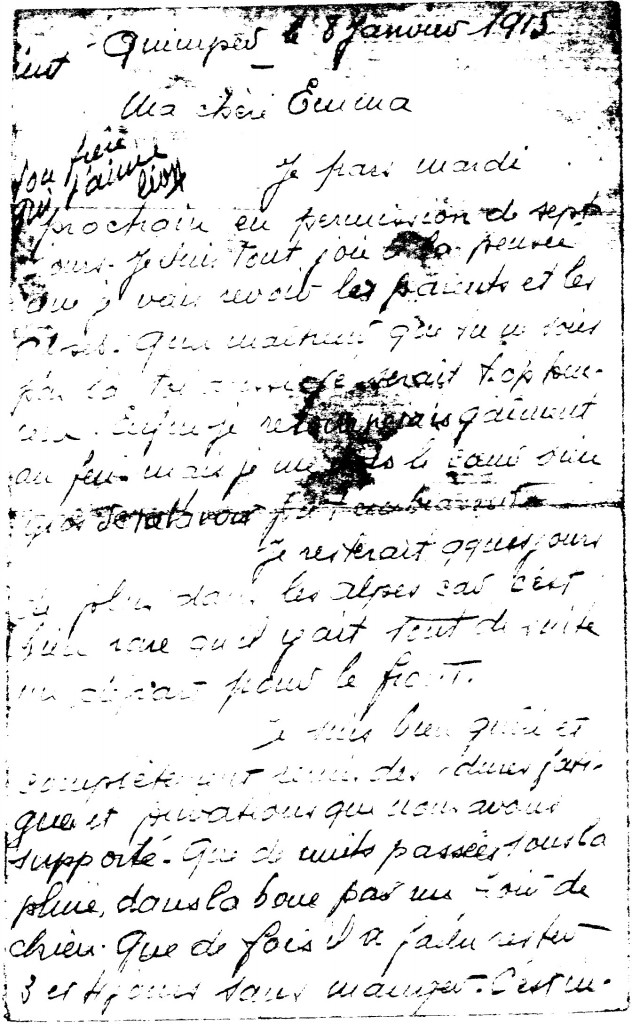 Quimper le 8 Janvier 1915
Ma chère Emma
ton frère
qui t'aime
Je pars mardi
prochain en permission de sept
jours. Je suis tout joie à la pensée
que je vais revoir les parents et les
que tu ne sois
pas là serait trop
Enfin je gaiment
au feu mais je me le
gros
Je resterait qques jours
de plus dans les alpes car c'est
bien rare qu'il y ait tout de suite
un départ pour le front.
Je suis bien guéri et
complètement remis des dures fati-
gues et privations que nous avons
supporté. Que de nuits passées sous la
pluie, dans la boue par un froid de
chien. Que de fois il a fallu rester
3 et 4 jours sans manger. C'est in-